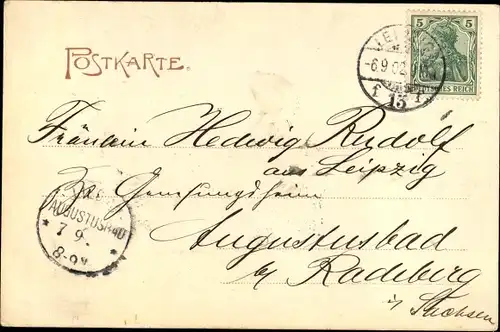 POSTKARTE.
5 5
LEIPZIG
-6.9.02.
f 13 f
DEUTSCHES REICH
Fräulein Hedwig Rudolf
aus Leipzig
Genesungsheim
AUGUSTUSBAD
* 7 9. *
8-9V.
Augustusbad
b/ Radeberg
i/ Sachsen